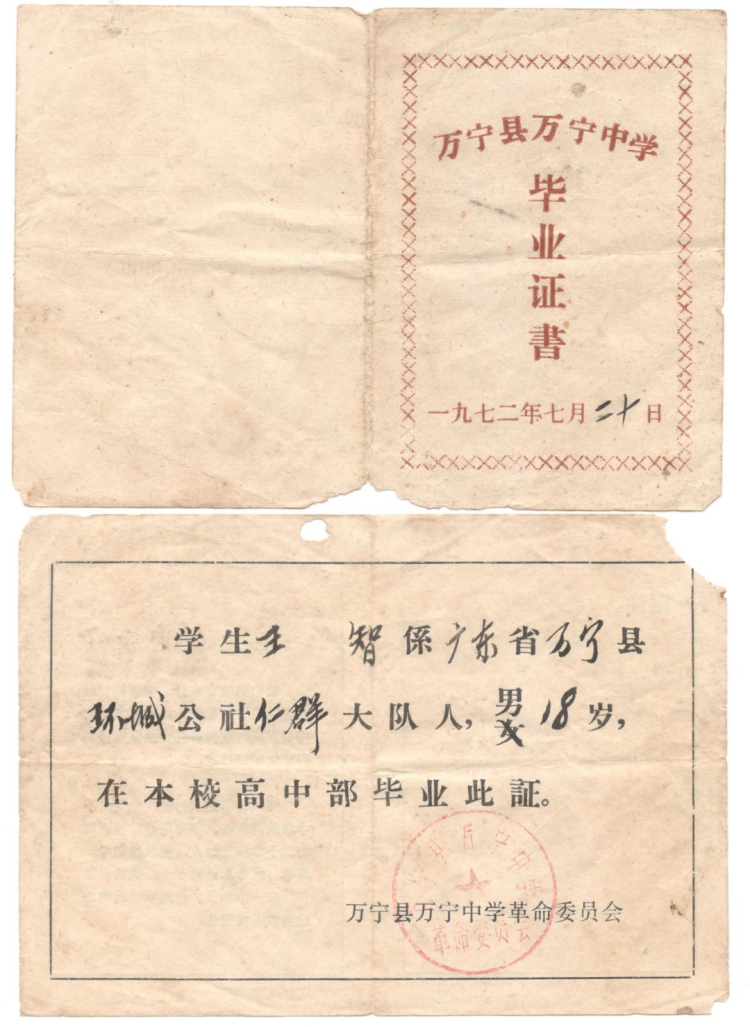 万宁县万宁中学
毕业证書
一九七二年七月二十日
学生王智係广东省万宁县
环城公社仁群大队人，男女18岁，
在本校高中部毕业此証。
万宁县万宁中学革命委员会
万宁中学
革命委员会